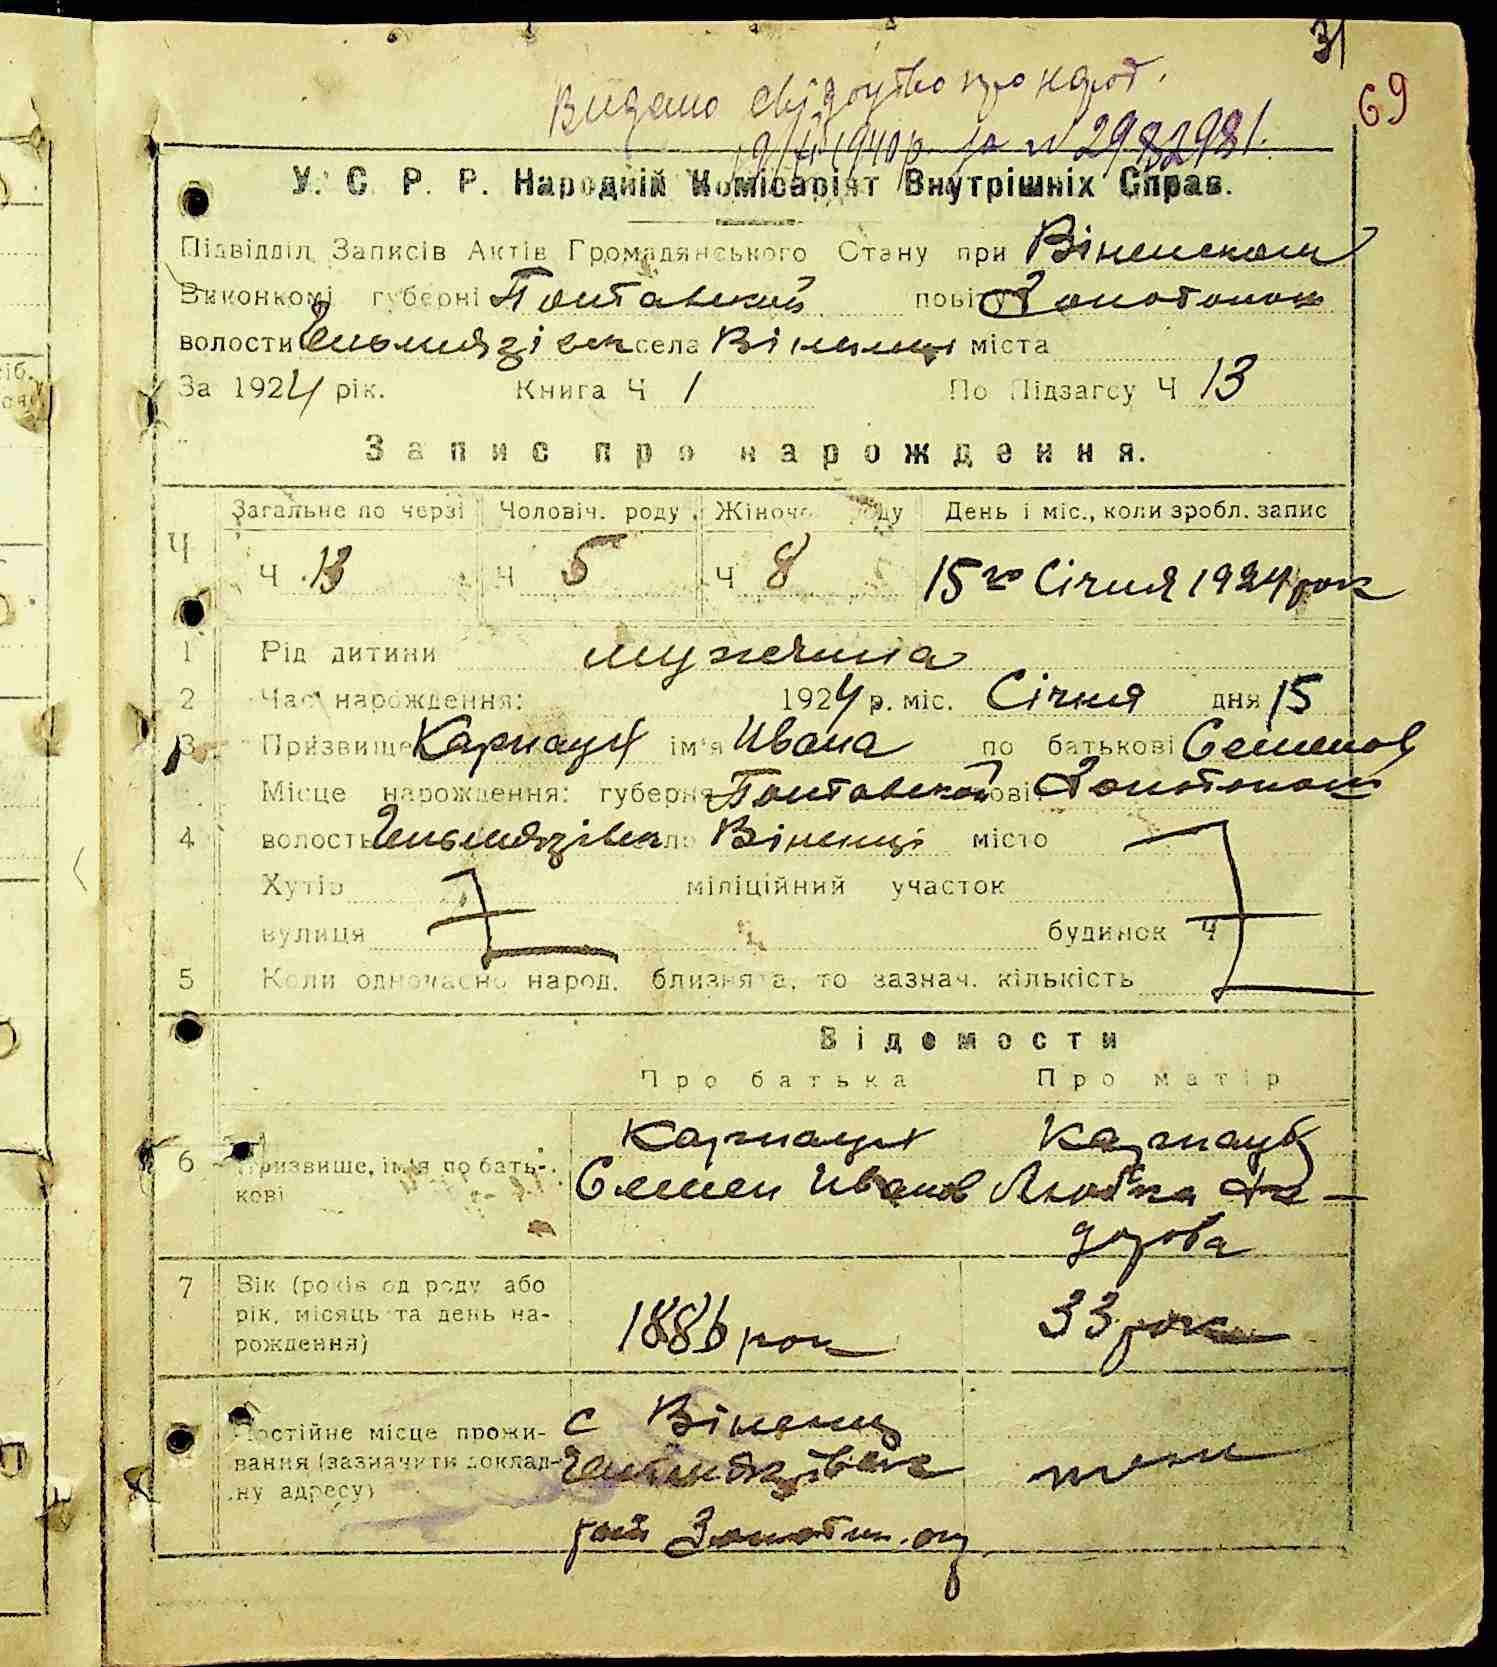 31
69
Видано свідоцтво про народ.
9/II 1940 р. за N 2982981.
У. С. Р. Р. Народній Комісаріят Внутрішніх Справ.
Підвідділ Записів Актів Громадянського Стану при Віненском
Виконкомі губерні Полтавский повіту Золотонош
волости Гельмязівск села Віненці міста
За 1924 рік. Книга Ч 1 По Підзагсу Ч 13
Запис про нарождення.
Загальне по черзі Чоловіч. роду Жіночо роду День і міс., коли зробл. запис
Ч Ч 13 Ч 5 Ч 8 15го Січня 1924 рок
1 Рід дитини мужчина
2 Час нарождення: 1924 р. міс. Січня дня 15
3 Призвище Карнаух ім'я Ивана по батькові Семенов
Місце нарождення: губерня Полтавской пові Золотонош
4 волость Гельмязівск село Віненці місто
Хутір міліційний участок
вулиця будинок Ч
5 Коли одночасно народ. близнята, то зазнач. кількість
Відемости
Про батька Про матір
Карнаух Карнаух
6 Призвище, ім'я по бать-
кові Семен Иванов Любка
7 Вік (років од роду або
рік, місяць та день на- 1886 рок 33 рока
рождення)
с Віненц
Постійне місце прожи-
вання (зазначити доклад- Гельмязівск тоже
ну адресу)
рай Золотон. ок